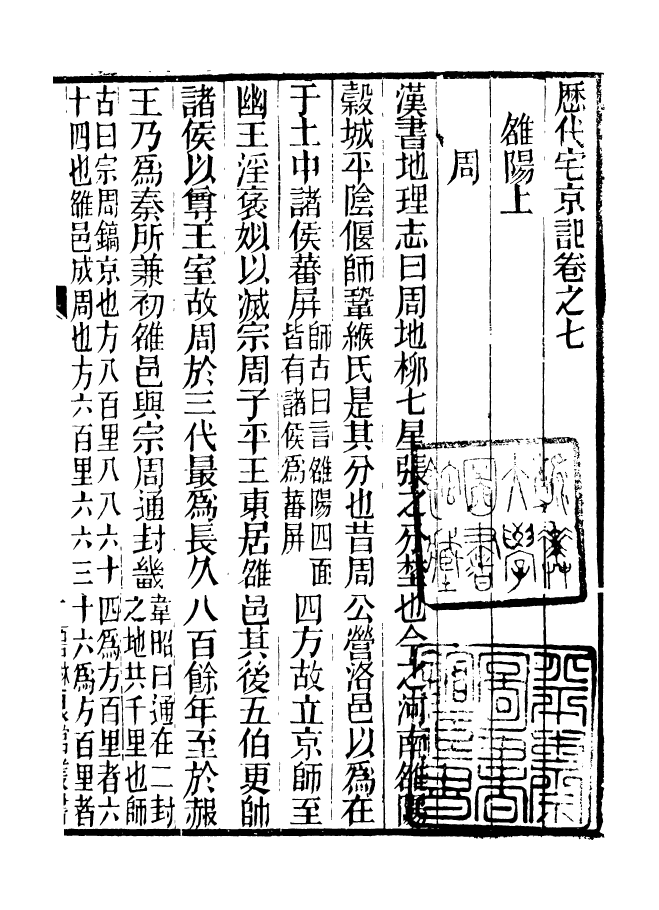 歷代宅京記卷之七
雒陽上
周
漢書地理志曰周地柳七星張之分埜也今之河南雒陽
穀城平陰偃師鞏緱氏是其分也昔周公營洛邑以爲在
于土中諸侯蕃屏師古曰言雒陽四面皆有諸侯爲蕃屏四方故立京師至
幽王淫褒姒以滅宗周子平王東居雒邑其後五伯更帥
諸侯以尊王室故周於三代最爲長久八百餘年至於赧
王乃爲秦所兼初雒邑與宗周通封畿韋昭曰通在二封之地共千里也師
古曰宗周鎬京也方八百里八八六十四爲方百里者六
十四也雒邑成周也方六百里六六三十六爲方百里者